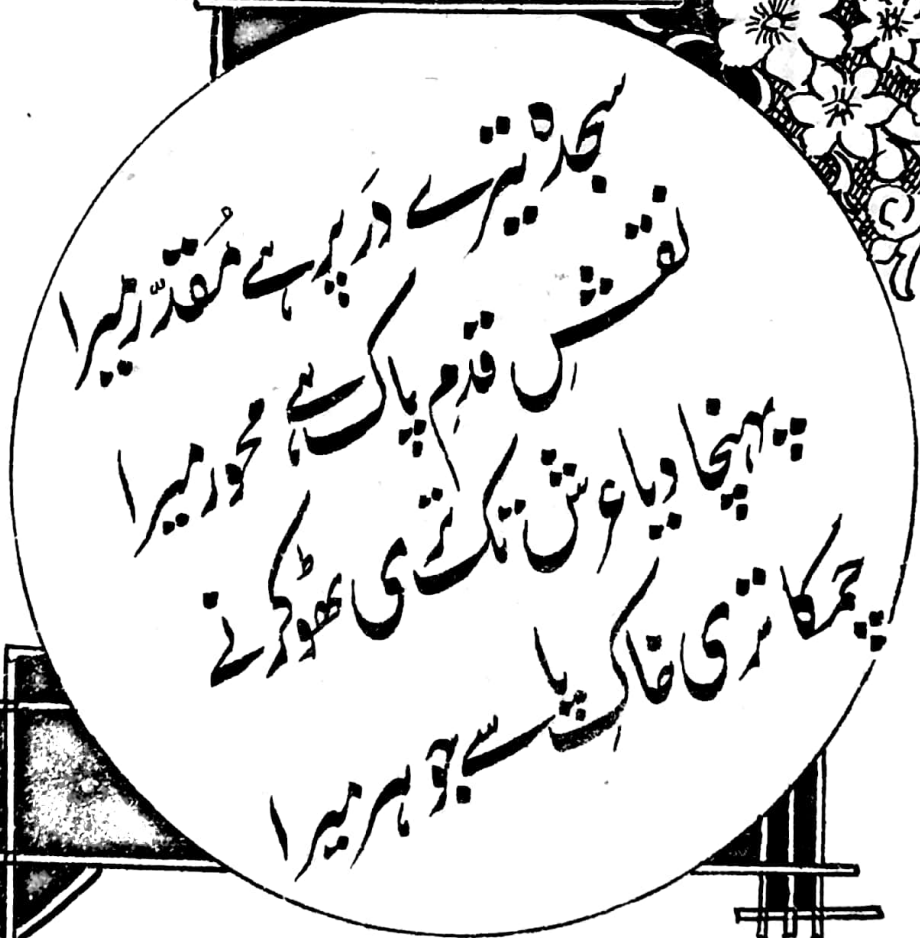 سجدہ تیرے دَر پر ہے مُقدّر میرا
نقشِ قدمِ پاک ہے محور میرا
پہنچا دیا عرش تک تری ٹھوکر نے
چمکا تری خاکِ پا سے جوہر میرا